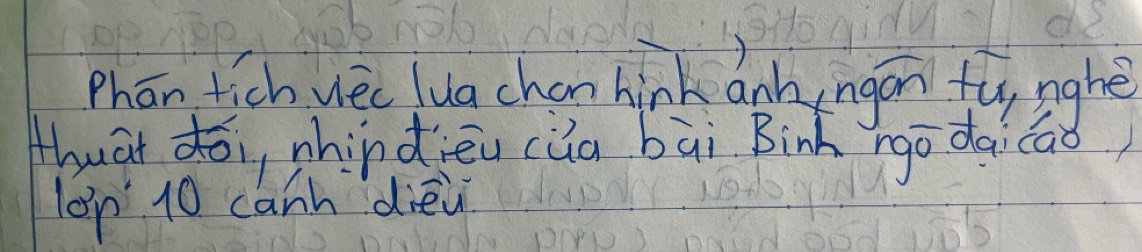 Phân tích việc lựa chọn hình ảnh, ngôn từ, nghệ
thuật đối, nhịp điệu của bài Bình ngô đại cáo,
lớp 10 cánh diều